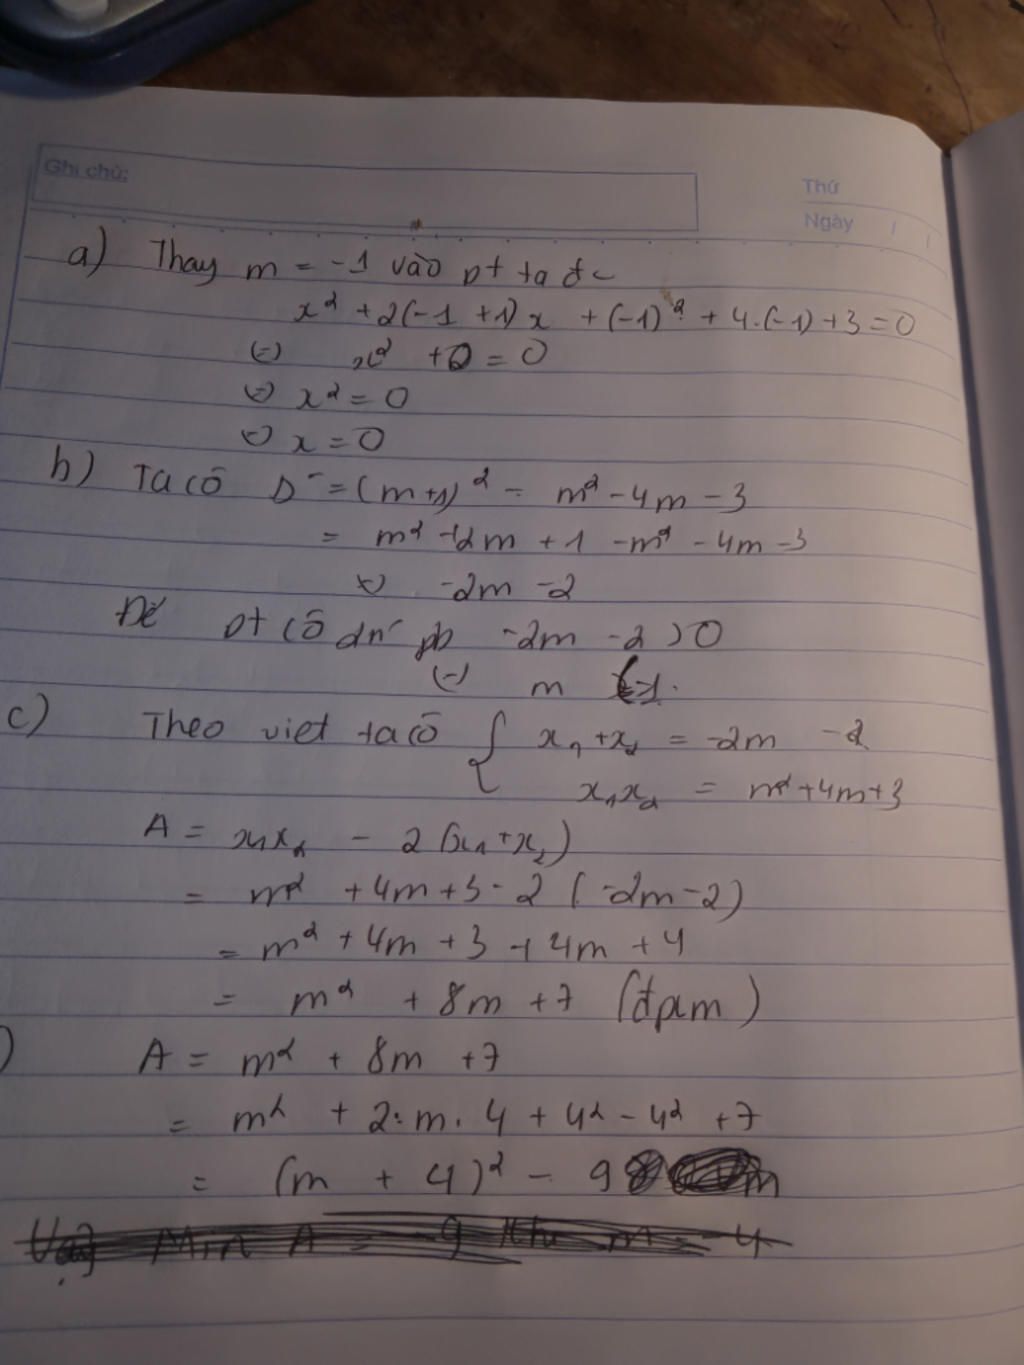 Ghi chú:
Thứ
Ngày / /
a) Thay m = -1 vào pt ta đc
x² + 2(-1 +1) x + (-1)² + 4.(-1) + 3 = 0
(=) x² + 0 = 0
(=) x² = 0
(=) x = 0
b) Ta có Δ' = (m+1)² - m² - 4m - 3
= m² +2m + 1 - m² - 4m - 3
(=) -2m - 2
Để pt có 2n' pb -2m - 2 > 0
(=) m < -1.
c) Theo viet ta có { x₁ + x₂ = -2m - 2
x₁x₂ = m² + 4m + 3
A = x₁x₂ - 2(x₁ + x₂)
= m² + 4m + 3 - 2 (-2m - 2)
= m² + 4m + 3 + 4m + 4
= m² + 8m + 7 (đpcm)
) A = m² + 8m + 7
= m² + 2.m.4 + 4² - 4² + 7
= (m + 4)² - 9
Vậy Min A = -9 khi m = -4